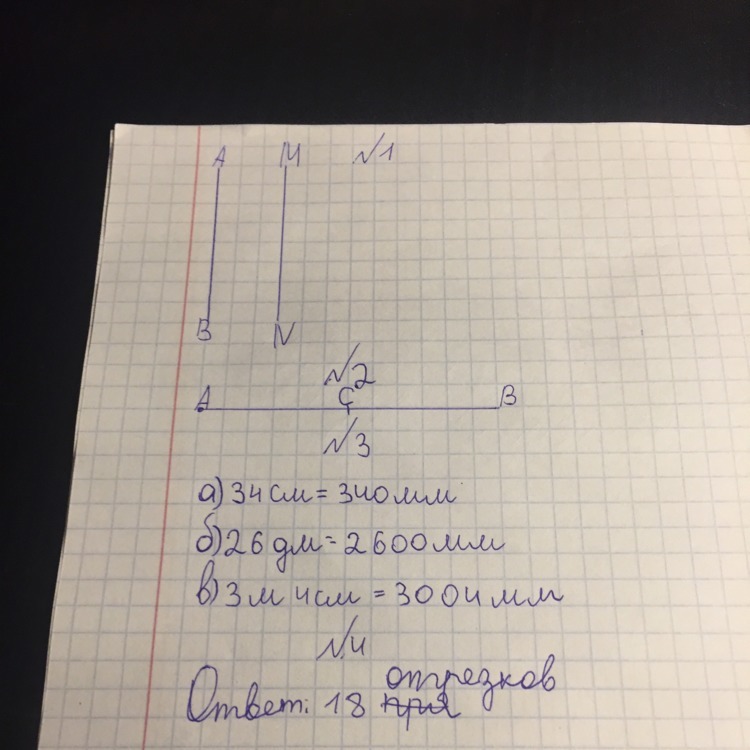 A M №1
B N
№2
A C B
№3
а) 34 см = 340 мм
б) 26 дм = 2600 мм
в) 3 м 4 см = 3004 мм
№4
отрезков
Ответ: 18